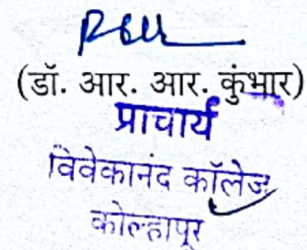 (डॉ. आर. आर. कुंभार)
प्राचार्य
विवेकानंद कॉलेज
कोल्हापुर